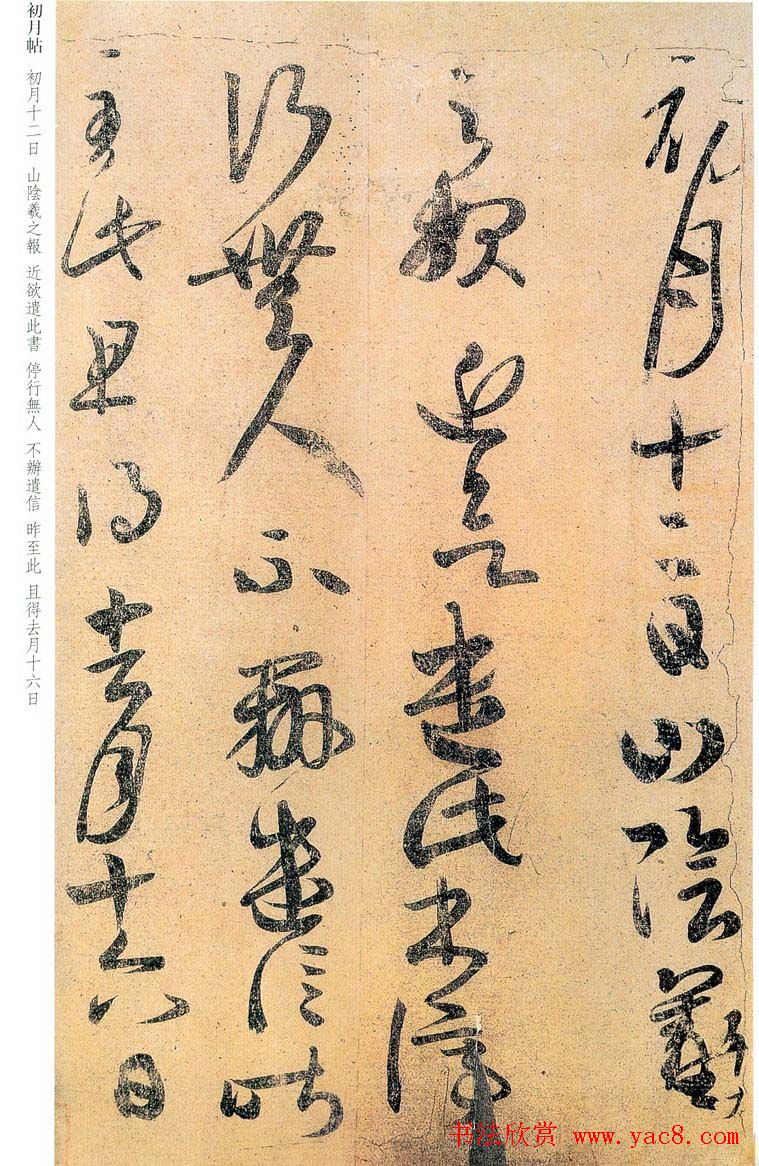 初月十二日山陰羲
之報近欲遣此書停
行無人不辦遣信昨
至此且得去月十六日
初月帖 初月十二日 山陰羲之報 近欲遣此書 停行無人 不辦遣信 昨至此 且得去月十六日
书法欣赏 www.yac8.com